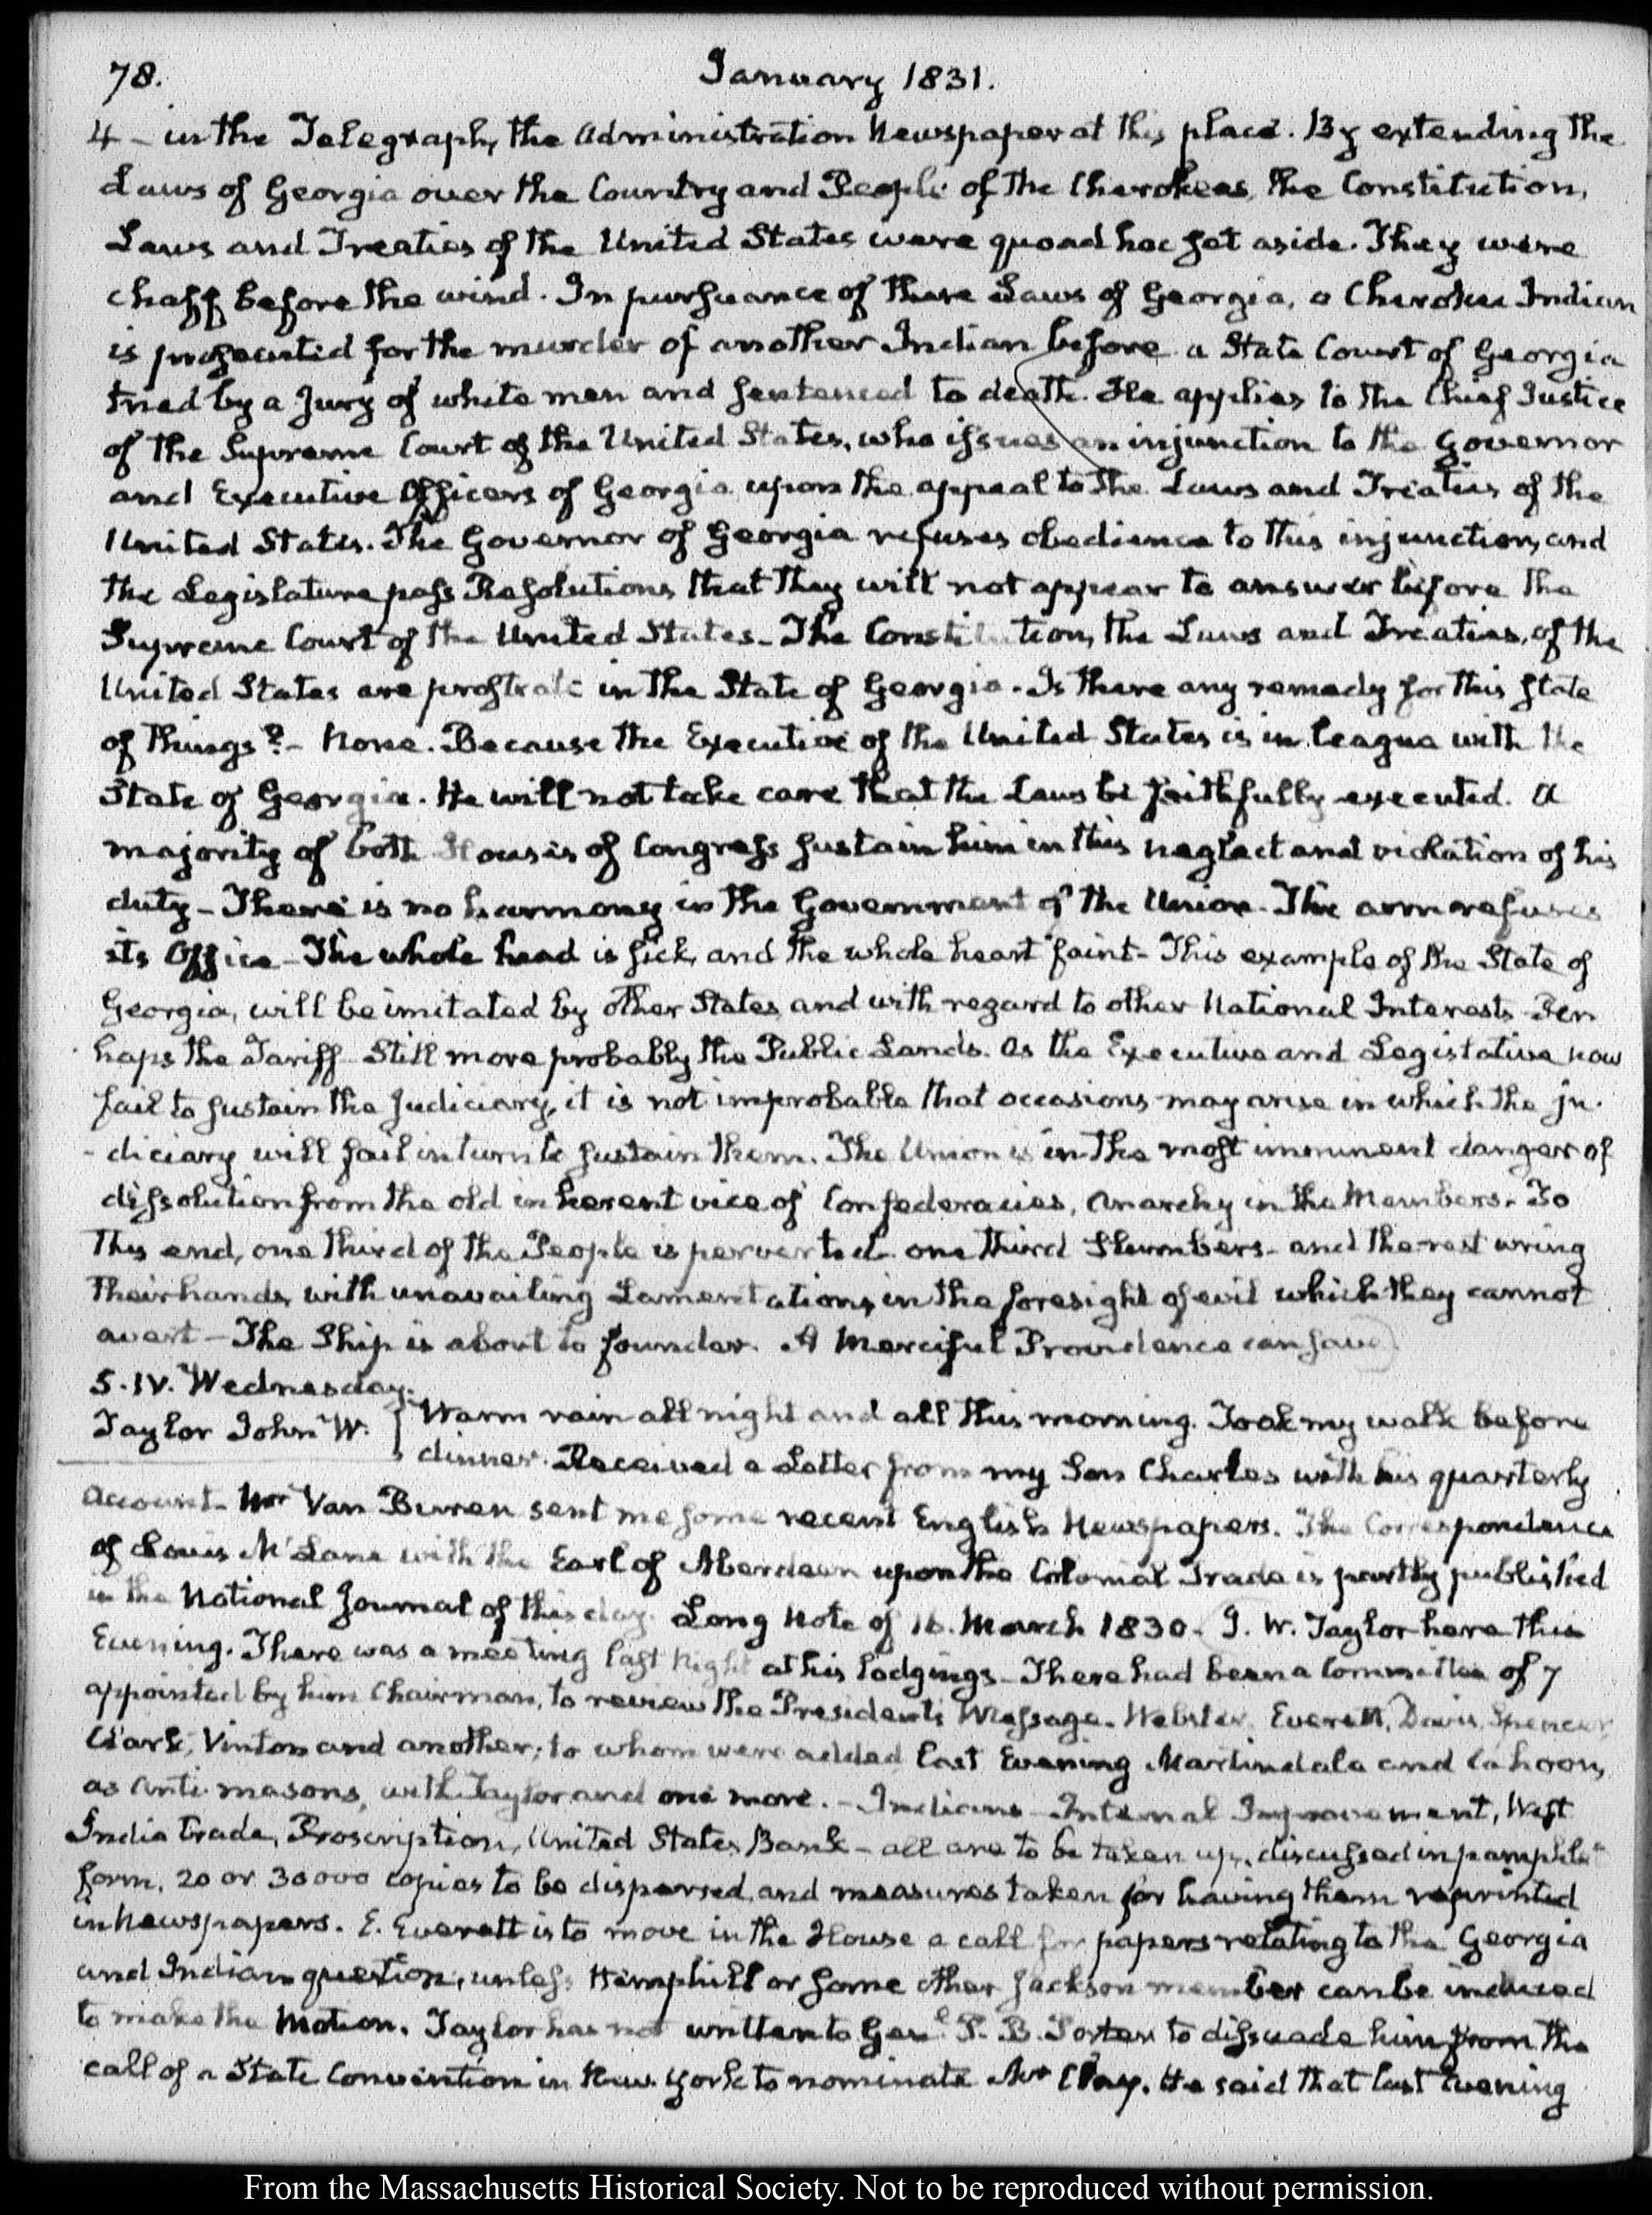 78. January 1831.
4 - in the Telegraph, the Administration Newspaper at this place. By extending the
Laws of Georgia over the Country and People of the Cherokees, the Constitution,
Laws and Treaties of the United States were quoad hoc set aside. They were
chaff before the wind. In pursuance of these Laws of Georgia, a Cherokee Indian
is prosecuted for the murder of another Indian before a State Court of Georgia
tried by a Jury of white men and sentenced to death. He applies to the Chief Justice
of the Supreme Court of the United States, who issues an injunction to the Governor
and Executive Officers of Georgia upon the appeal to the Laws and Treaties of the
United States. The Governor of Georgia refuses obedience to this injunction, and
the Legislature pass Resolutions that they will not appear to answer before the
Supreme Court of the United States - The Constitution, the Laws and Treaties, of the
United States are prostrate in the State of Georgia. Is there any remedy for this state
of things? - None. Because the Executive of the United States is in league with the
State of Georgia. He will not take care that the Laws be faithfully executed. A
majority of both Houses of Congress sustain him in this neglect and violation of his
duty - There is no harmony in the Government of the Union - The arm refuses
its Office - The whole head is sick, and the whole heart faint - This example of the State of
Georgia, will be imitated by other States and with regard to other National Interests - Per
haps the Tariff - Still more probably the Public Lands. As the Executive and Legislative now
fail to sustain the Judiciary, it is not improbable that occasions may arise in which the ju-
-diciary will fail in turn to sustain them. The Union is in the most imminent danger of
dissolution from the old inherent vice of Confederacies, Anarchy in the Members. To
this end, one third of the People is perverted - one third slumbers - and the rest wring
their hands, with unavailing Lamentations, in the foresight of evil which they cannot
avert - The Ship is about to founder. A Merciful Providence can save
5. IV. Wednesday.
Taylor John W. } Warm rain all night and all this morning. Took my walk before
dinner. Received a Letter from my Son Charles with his quarterly
Account - Mr Van Buren sent me some recent English Newspapers. The Correspondence
of Louis McLane with the Earl of Aberdeen upon the Colonial Trade is partly published
in the National Journal of this day. Long Note of 16. March 1830 - J. W. Taylor here this
Evening. There was a meeting last Night at his lodgings - There had been a Committee of 7
appointed by him Chairman, to review the President's Message - Webster, Everett, Davis, Spencer,
Clark, Vinton and another; to whom were added last Evening Martindale and Cahoon,
as Anti-masons, with Taylor and one more. - Indians - Internal Improvement, West
India trade, Proscription, United States Bank - all are to be taken up, discussed in pamphlet
form, 20 or 30 000 copies to be dispersed, and measures taken for having them reprinted
in Newspapers. E. Everett is to move in the House a call for papers relating to the Georgia
and Indian question, unless Hemphill or some other Jackson member can be induced
to make the Motion. Taylor has not written to Genl P. B. Porter to dissuade him from the
call of a State Convention in New York to nominate Mr Clay. He said that last Evening
From the Massachusetts Historical Society. Not to be reproduced without permission.